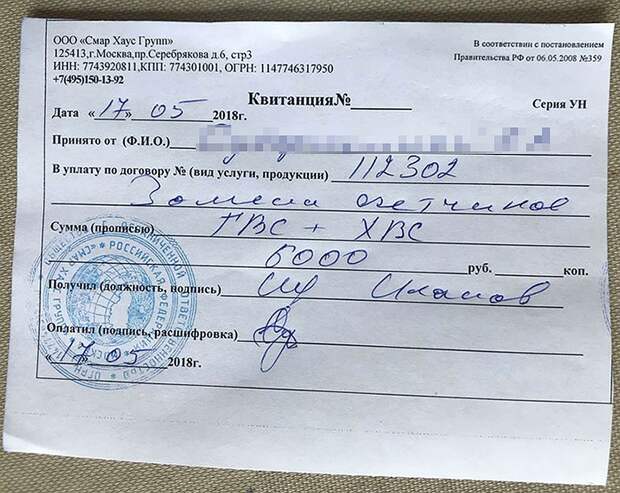 ООО «Смар Хаус Групп»
125413,г.Москва,пр.Серебрякова д.6, стр3
ИНН: 7743920811,КПП: 774301001, ОГРН: 1147746317950
+7(495)150-13-92
В соответствии с постановлением
Правительства РФ от 06.05.2008 №359
Квитанция№
Серия УН
Дата «17» 05 2018г.
Принято от (Ф.И.О.)
В уплату по договору № (вид услуги, продукции) 112302
Замена счетчиков
Сумма (прописью) ГВС + ХВС
6000 руб. коп.
Получил (должность, подпись)
Оплатил (подпись, расшифровка)
«17» 05 2018г.
РОССИЙСКАЯ ФЕДЕРАЦИЯ